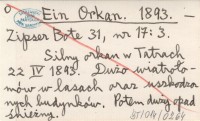 Ein Orkan. 1893. -
Zipser Bote 31, nr 17: 3.
Silny orkan w Tatrach
22 IV 1893. Dużo wiatroło-
mów w lasach oraz uszkodzo-
nych budynków. Potem duży opad
śnieżny.